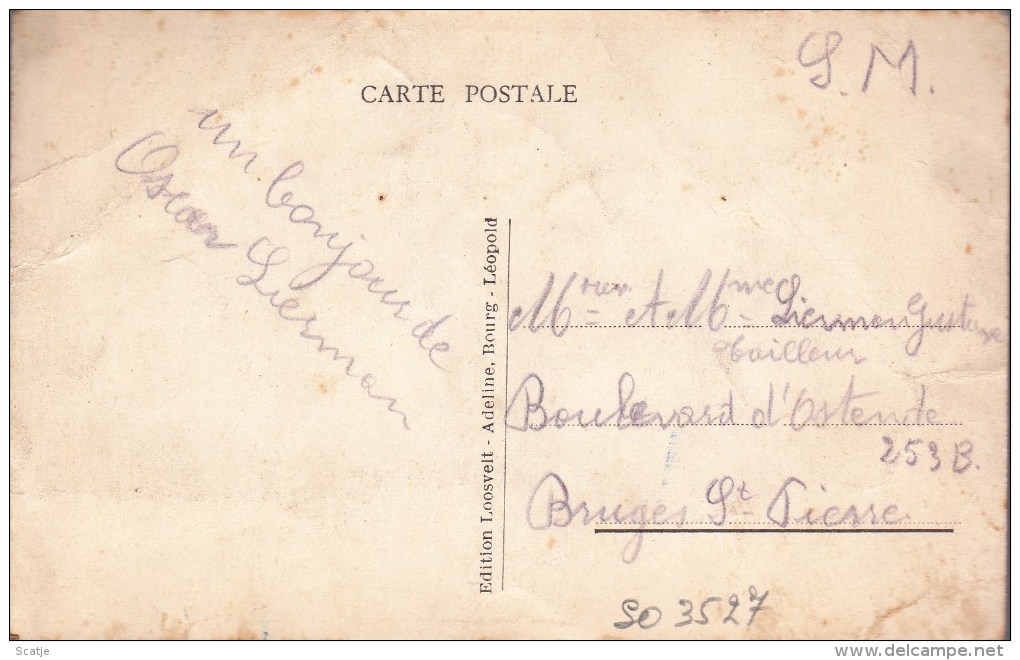 S. M.
CARTE POSTALE
un bonjour de
Oscar Lierman
Edition Loosvelt - Adeline, Bourg - Léopold
Mr et Mme Lierman Gustave
tailleur
Boulevard d'Ostende
253 B.
Bruges St Pierre
SO 3527
Scatje
delcampe.net